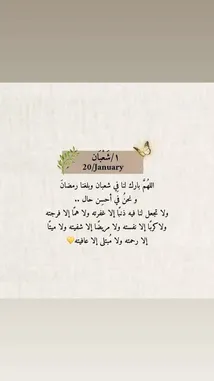 ١/شَعْبَان
20/January
اللهُمَّ بارك لنا في شعبان وبلغنا رمضانَ
و نحنُ في أحسنِ حال ..
ولا تجعل لنا فيه ذنبًا إلا غفرته ولا همًا إلا فرجته
ولاكربًا إلا نفسته ولا مريضًا إلا شفيته ولا ميتًا
إلا رحمته ولا مُبتلى إلا عافيته💛